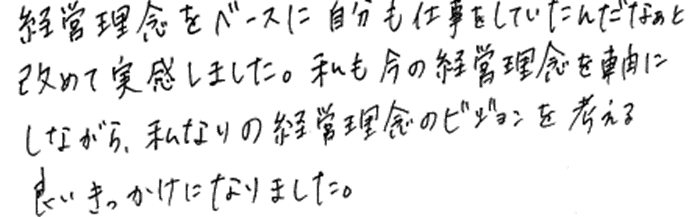 経営理念をベースに自分も仕事をしていたんだなぁと
改めて実感しました。私も今の経営理念を軸に
しながら、私なりの経営理念のビジョンを考える
良いきっかけになりました。